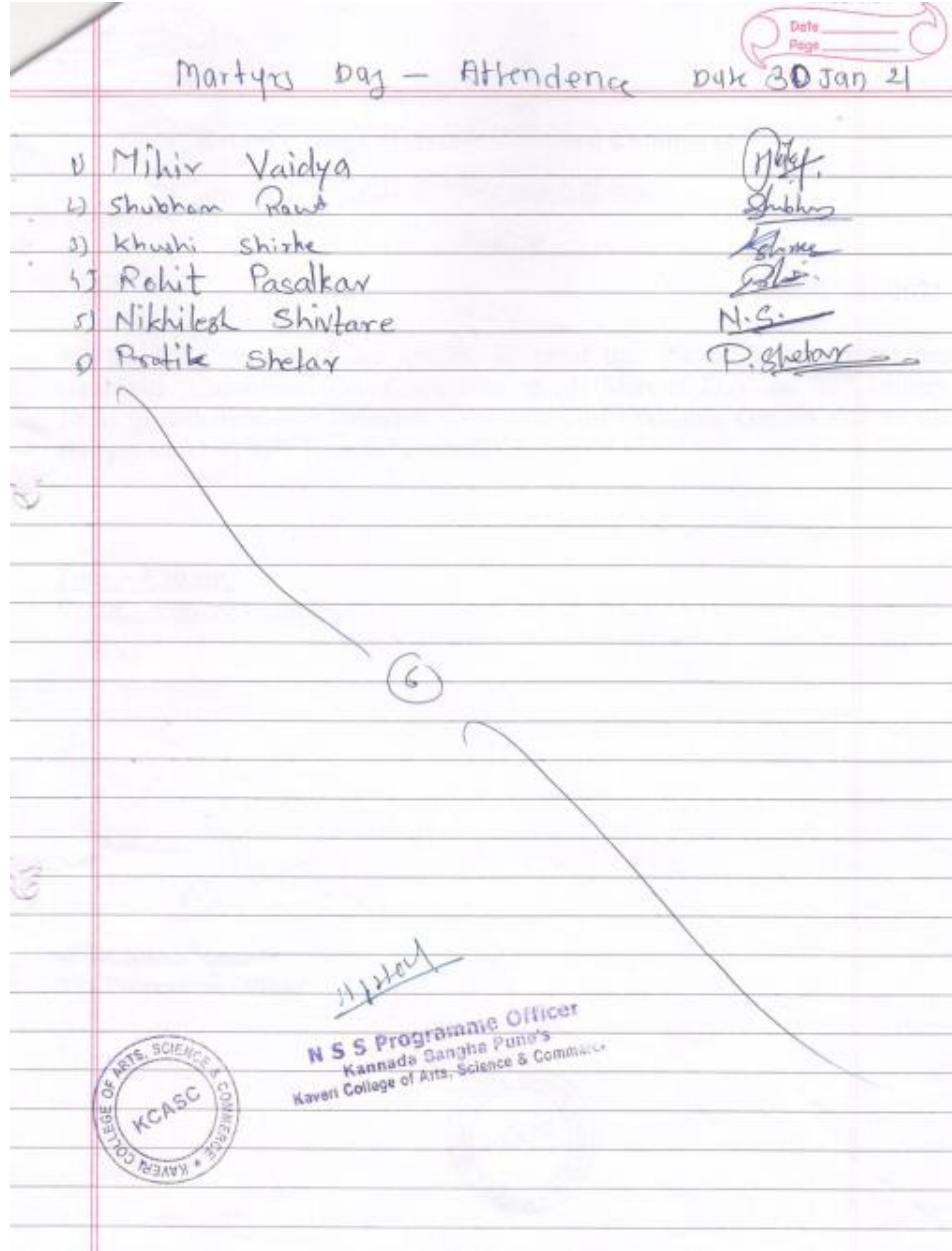 Date
Page
Martyrs Day - Attendence Date 30 Jan 21
1) Mihir Vaidya
2) Shubham Raut Shubham
3) Khushi Shirke
4) Rohit Pasalkar
5) Nikhilesh Shivtare N.S.
6) Pratik Shelar P. Shelar
6
N S S Programme Officer
Kannada Sangha Pune's
Kaveri College of Arts, Science & Commerce
KAVERI COLLEGE OF ARTS, SCIENCE & COMMERCE *
KCASC